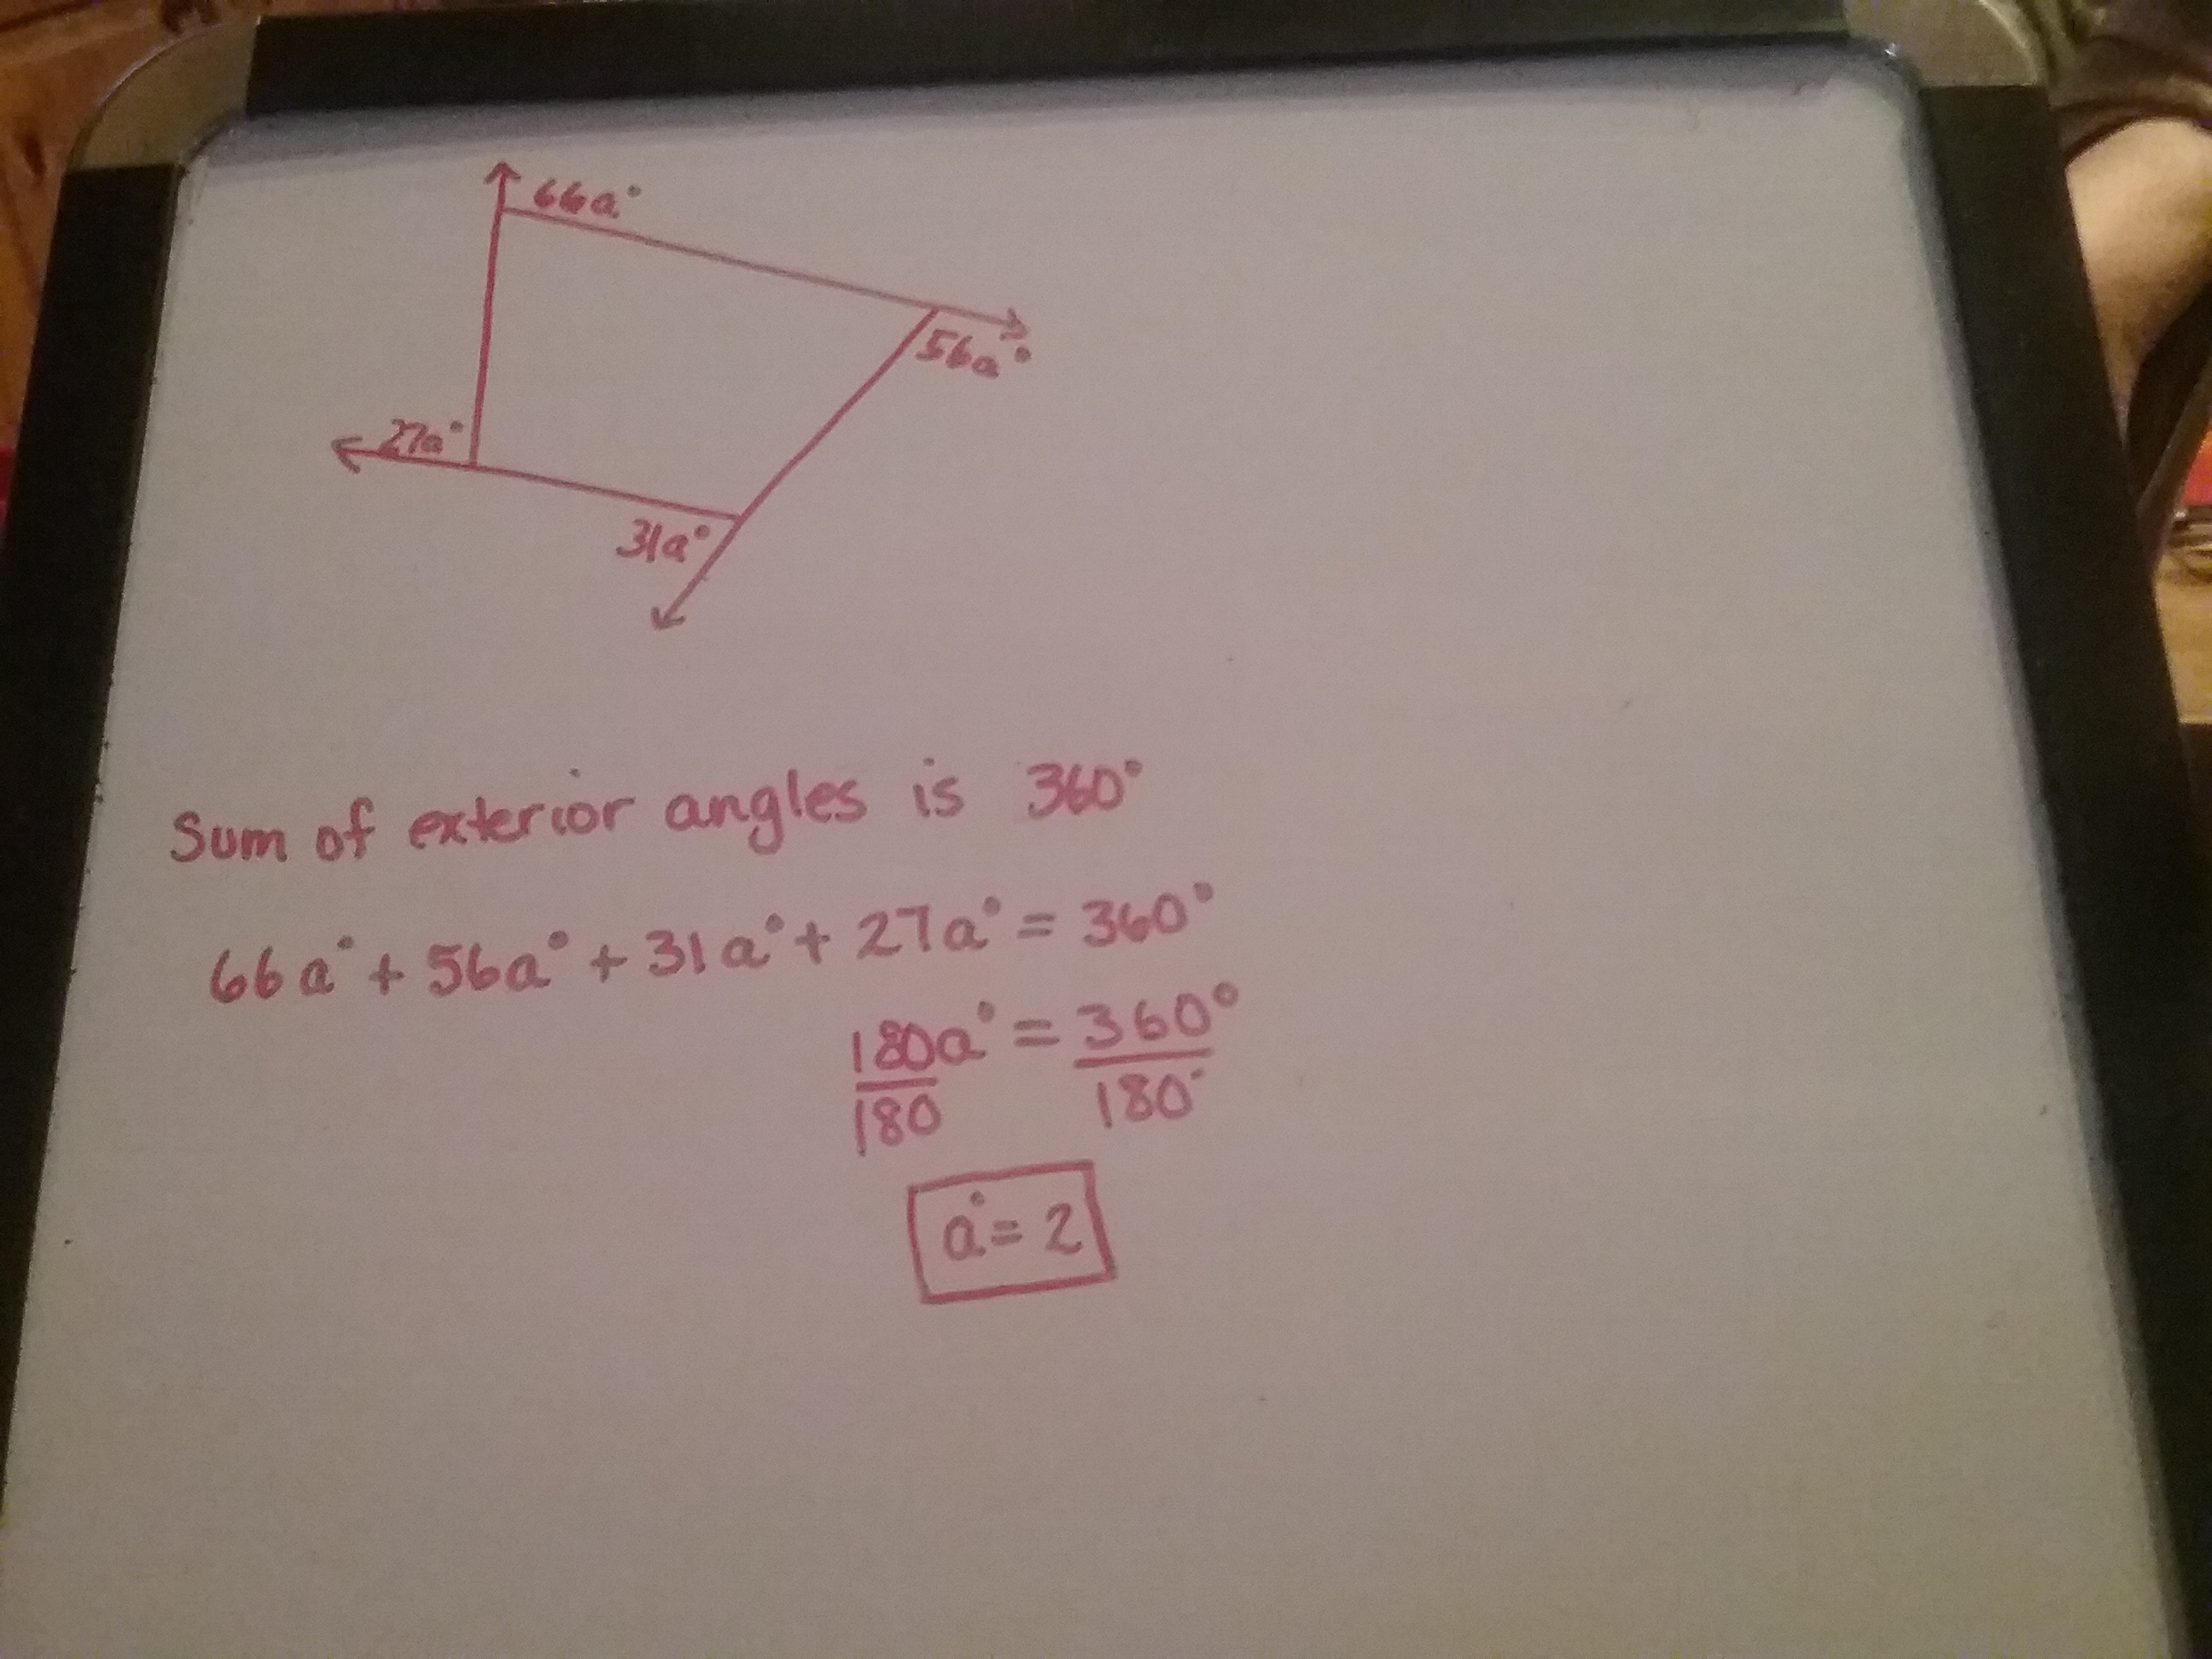 66a°
56a°
27a°
31a°
Sum of exterior angles is 360°
66a° + 56a° + 31a° + 27a° = 360°
180a° = 360°
180 180°
a° = 2